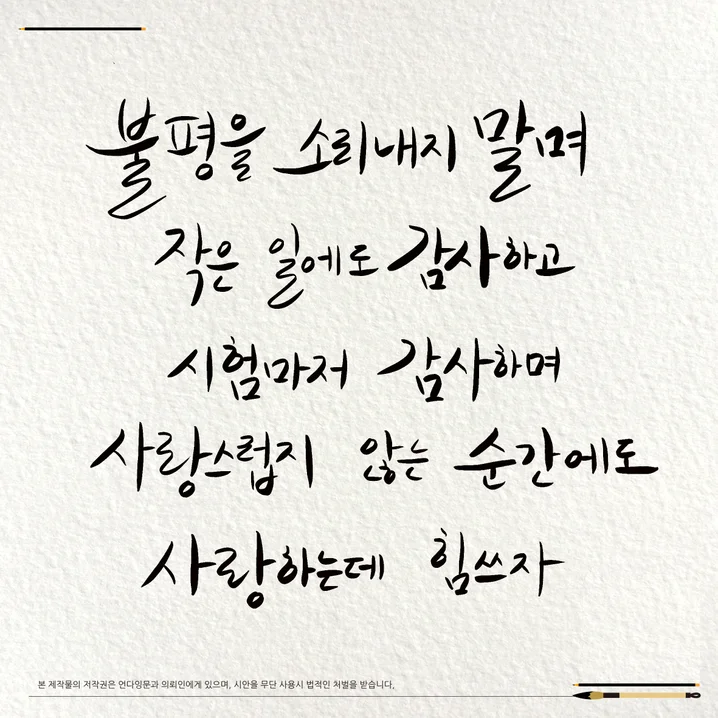 불평을 소리내지 말며
작은 일에도 감사하고
시험마저 감사하며
사랑스럽지 않는 순간에도
사랑하는데 힘쓰자
본 제작물의 저작권은 연다잉문과 의뢰인에게 있으며, 시안을 무단 사용시 법적인 처벌을 받습니다.